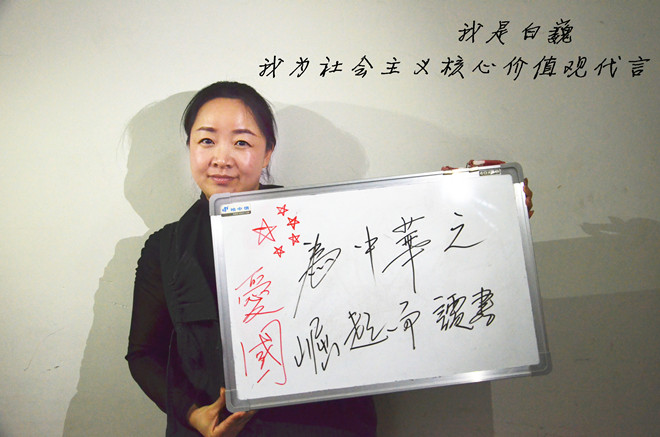 我是白巍
我为社会主义核心价值观代言
愛國
為中華之
崛起而讀書